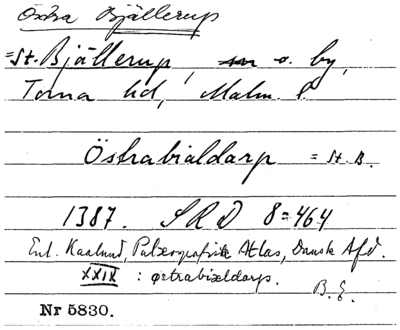 Östra Bjällerup
= St. Bjällerup, sn o. by,
Torna hd, Malm. l.
Östrabialdarp = St. B.
1387. SRD 8=464
Enl. Kaalund, Palæografisk Atlas, Dansk Afd.
XXIX : østrabiældarp.
B. E.
Nr 5830.